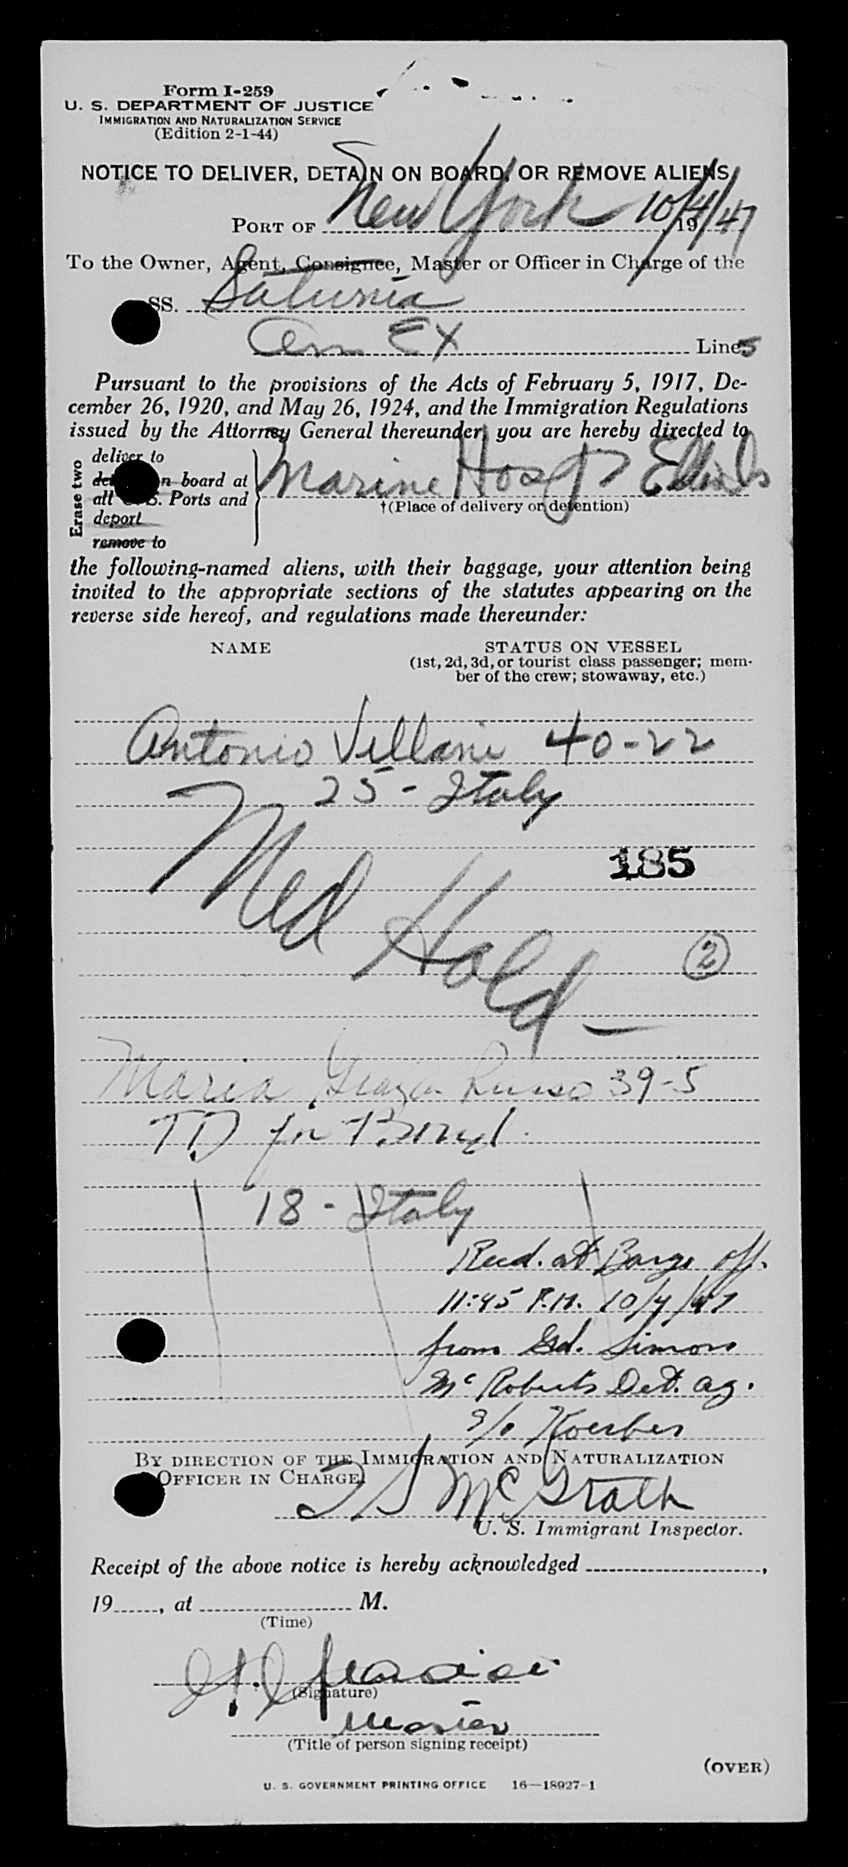 Form I-259
U. S. DEPARTMENT OF JUSTICE
IMMIGRATION AND NATURALIZATION SERVICE
(Edition 2-1-44)
NOTICE TO DELIVER, DETAIN ON BOARD, OR REMOVE ALIENS
PORT OF New York 10/4/1947
To the Owner, Agent, Consignee, Master or Officer in Charge of the
SS. Saturnia
Am Ex Lines
Pursuant to the provisions of the Acts of February 5, 1917, De-
cember 26, 1920, and May 26, 1924, and the Immigration Regulations
issued by the Attorney General thereunder, you are hereby directed to
Erase two
deliver to
n board at
all U. S. Ports and
deport
remove to
Marine Hosp Ellis Is
†(Place of delivery or detention)
the following-named aliens, with their baggage, your attention being
invited to the appropriate sections of the statutes appearing on the
reverse side hereof, and regulations made thereunder:
NAME STATUS ON VESSEL
(1st, 2d, 3d, or tourist class passenger; mem-
ber of the crew; stowaway, etc.)
Antonio Villani 40-22
25 - Italy
185
Med Hold -
2
Maria Grazia Russo 39-5
TD for
18 - Italy
Recd. at Barge off.
11:45 P.M. 10/4/47
from Gd. Simons
McRoberts Det. ag.
BY DIRECTION OF THE IMMIGRATION AND NATURALIZATION
OFFICER IN CHARGE
McGrath
U. S. Immigrant Inspector.
Receipt of the above notice is hereby acknowledged ,
19 , at M.
(Time)
(Signature)
Master
(Title of person signing receipt)
(OVER)
U. S. GOVERNMENT PRINTING OFFICE 16—18927-1